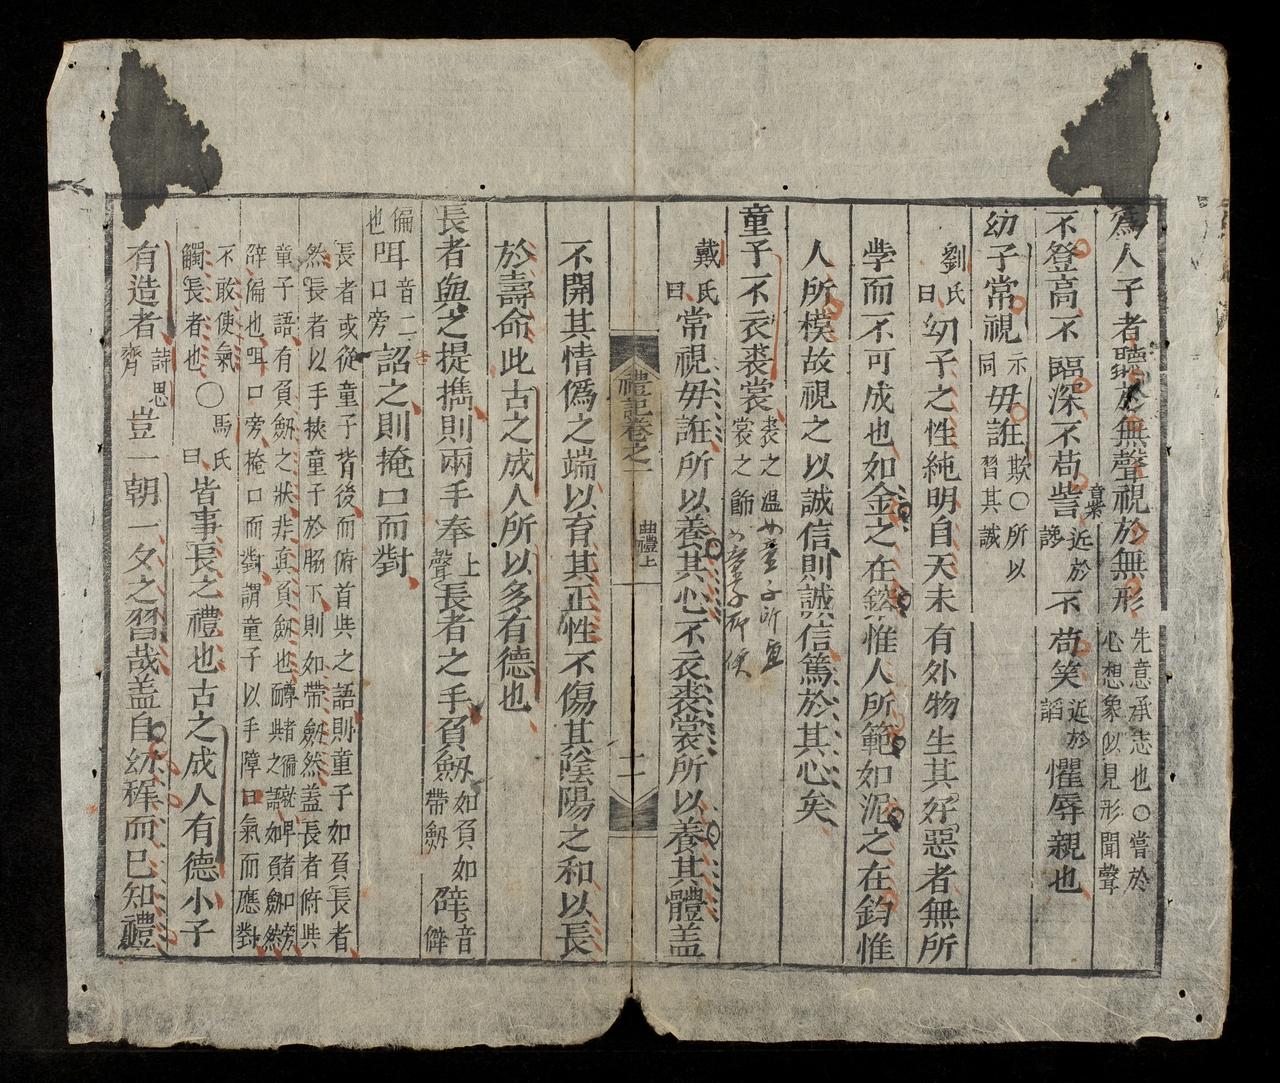 為人子者聽於無聲視於無形先意承志也○嘗於心想象似見形聞聲
不登高不臨深不苟訾近於讒不苟笑近於謟懼辱親也
幼子常視示同毋誑欺○所以習其誠
劉氏曰幼子之性純明自天未有外物生其好惡者無所
學而不可成也如金之在鎔惟人所範如泥之在鈞惟
人所模故視之以誠信則誠信篤於其心矣
童子不衣裘裳裘之溫女童子所宜裳之飾女童子所便
戴氏曰常視毋誑所以養其心不衣裘裳所以養其體蓋
禮記卷之一 曲禮上 十二
不開其情偽之端以育其正性不傷其陰陽之和以長
於壽命此古之成人所以多有德也
長者與之提攜則兩手奉上聲長者之手負劒如負如帶劒辟音僻
偏也咡音二口旁詔之則掩口而對
長者或從童子背後而俯首與之語則童子如負長者
然長者以手挾童子於脇下則如帶劒然蓋長者俯與
童子語有負劒之狀非真負劒也
辟偏也咡口旁掩口而對謂童子以手障口氣而應對
不敢使氣觸長者也○馬氏曰皆事長之禮也古之成人有德小子
有造者詩思齊豈一朝一夕之習哉蓋自幼穉而已知禮